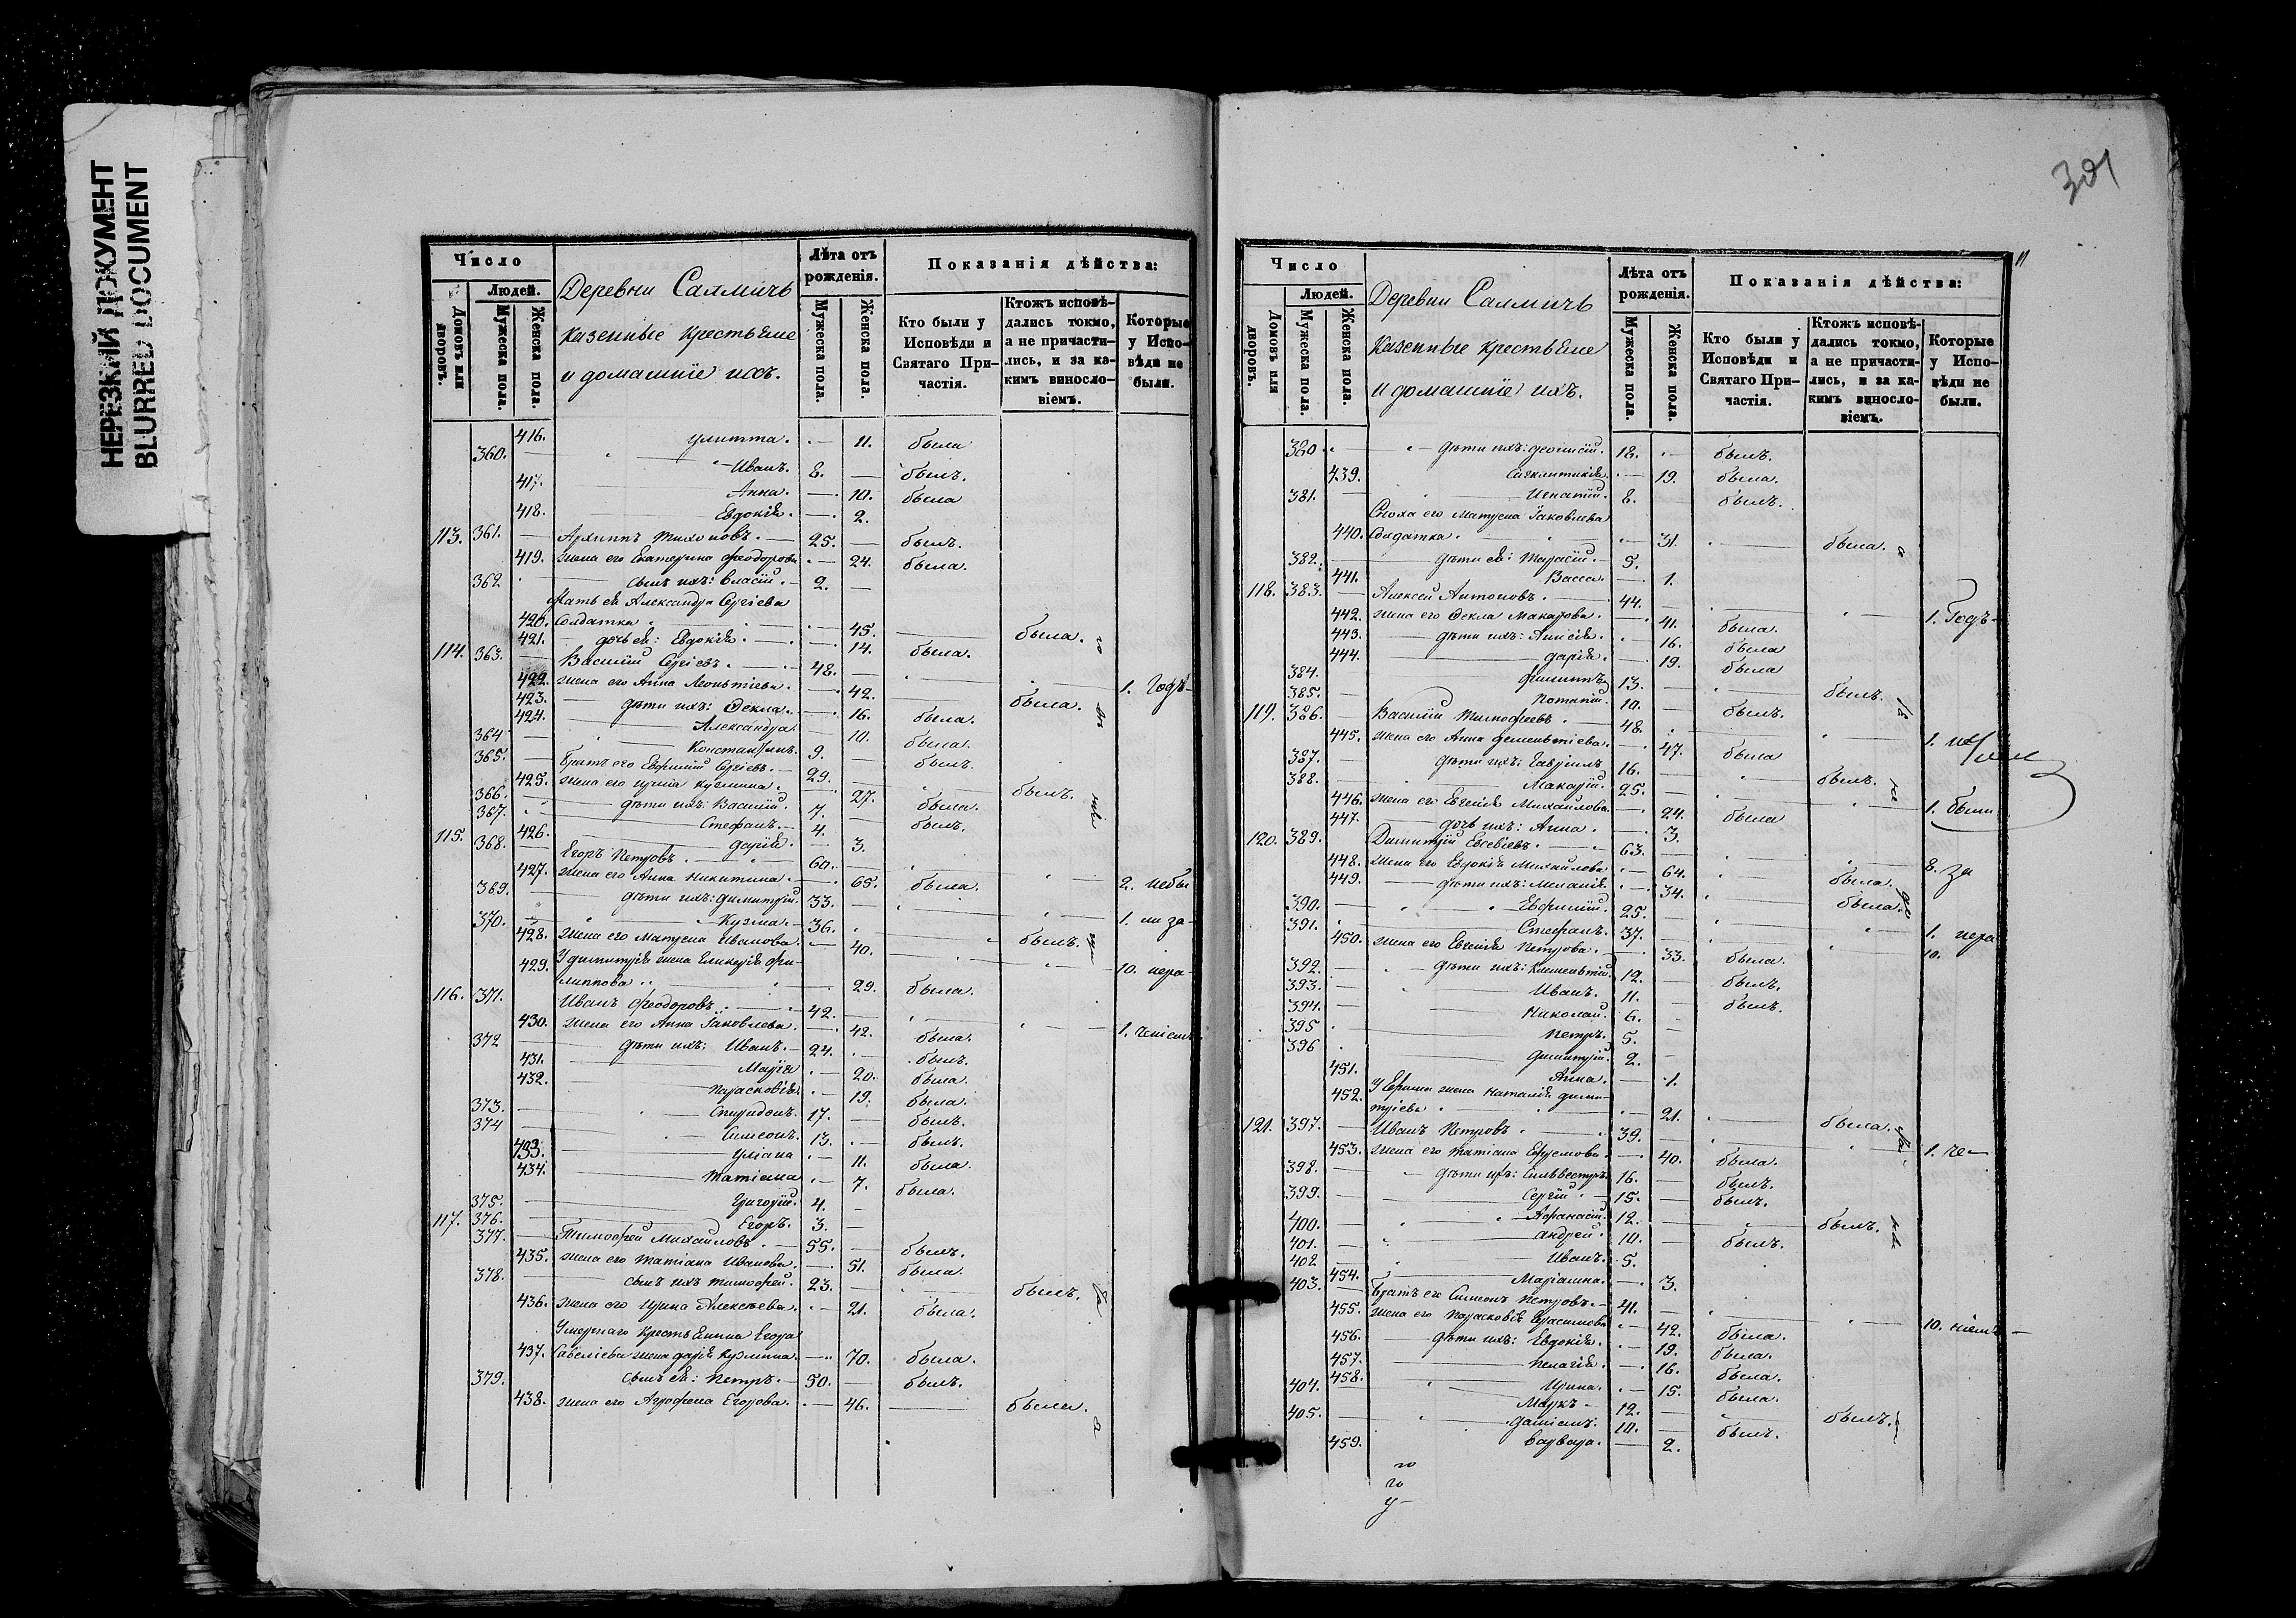 НЕРЕЗКИЙ ДОКУМЕНТ
BLURRED DOCUMENT
301
Число
Людей.
Домовъ или дворовъ.
Мужеска пола.
Женска пола.
Деревни Салмичъ
казенные крестьяне
и домашніе ихъ.
Лѣта отъ рожденія.
Мужеска пола.
Женска пола.
Показанія дѣйства:
Кто были у Исповѣди и Святаго Причастія.
Ктожъ исповѣдались токмо, а не причастились, и за какимъ винословіемъ.
Которые у Исповѣди не были.
416. Улитта. 11. была
360. Иванъ. 8. былъ.
417. Анна. 10. была
418. Евдокія. 2.
113. 361. Архиппъ Тихоновъ. 25. былъ.
419. жена его Екатерина Феодорова 24. была.
362 сынъ ихъ: Власій. 2.
Мать ея Александра Сергіева
420. Солдатка. 45. была.
421. дочь ея: Евдокія. 14. была.
114. 363. Василій Сергіевъ. 48. 1. Годъ
422. жена его Анна Леонтіева. 42. была.
423. дѣти ихъ: Ѳекла. 16. была.
424. Александра. 10. была.
364 Константинъ. 9. былъ.
365. Братъ его Евфимій Сергіевъ. 29. былъ.
425. жена его Ирина Кузмина. 27. была.
366. дѣти ихъ: Василій. 7. былъ.
367. Стефанъ. 4.
426. Дарія. 3.
115. 368. Егоръ Петровъ. 60. 2. небы
427. жена его Анна Никитина. 65. была.
369. дѣти ихъ: Димитрій. 33. 1. ли за
370. Кузма. 36. былъ.
428. жена его Матрена Иванова. 40. 10. нера
429. У Димитрія жена Гликерія Филиппова 29. была.
116. 371. Иванъ Феодоровъ. 42. 1. ченіемъ
430. жена его Анна Іаковлева. 42. была.
372 дѣти ихъ: Иванъ. 24. былъ.
431. Марія 20. была.
432. Парасковія. 19. была.
373. Спиридонъ. 17. былъ.
374 Симеонъ. 13. былъ.
433. Уліана 11. была.
434. Татіана 7. была.
375. Григорій. 4.
376. Егоръ. 3.
117. 377. Тимофей Михайловъ. 55. былъ.
435. жена его Татіана Иванова. 51. была.
378. сынъ ихъ Тимофей. 23. былъ.
436. жена его Ирина Алексѣева. 21. была.
Умершаго крестьянина Егора
437. Савеліева жена Дарія Кузмина. 70. была.
379. сынъ ея: Петръ. 50. былъ.
438. жена его Агрофена Егорова. 46. была.
Число
Людей.
Домовъ или дворовъ.
Мужеска пола.
Женска пола.
Деревни Салмичъ
казенные крестьяне
и домашніе ихъ.
Лѣта отъ рожденія.
Мужеска пола.
Женска пола.
Показанія дѣйства:
Кто были у Исповѣди и Святаго Причастія.
Ктожъ исповѣдались токмо, а не причастились, и за какимъ винословіемъ.
Которые у Исповѣди не были.
380 дѣти ихъ: Діонисій. 18. былъ.
439. Синклитикія. 19. была.
381. Игнатій. 8. былъ.
Сноха его Матрена Іаковлева
440. Солдатка. 31. была.
382. дѣти ея: Тарасій. 5.
441. Васса. 1.
118. 383. Алексей Антоновъ. 44. 1. Годъ
442. жена его Ѳекла Макарова. 41. была.
443. дѣти ихъ: Анисія. 16. была
444. Дарія. 19. была
384. Филиппъ 13. былъ.
385. Потапій. 10. былъ.
119. 386. Василій Тимофеевъ. 48.
445. жена его Анна Дементіева. 47. была
387. дѣти ихъ: Гавріилъ 16. былъ.
388. Макарій. 25. 1. были
446. жена его Евгенія Михайлова. 24. была
447. дочь ихъ: Анна. 3.
120. 389. Димитрій Евсевіевъ. 63. 8. за
448. жена его Евдокія Михайлова 64. была.
449. дѣти ихъ: Меланія. 34. была.
390. Евфимій. 25. 1. нера
391. Стефанъ. 37. 10.
450. жена его Евгенія Петрова. 33. была.
392. дѣти ихъ: Климентій. 12. былъ.
393. Иванъ. 11. былъ.
394. Николай. 6.
395 Петръ. 5.
396 Димитрій. 2.
451. Анна. 1.
452. У Ефима жена Наталія Димитріева 21. была.
121. 397. Иванъ Петровъ. 39. 1. че
453. жена его Татіана Ефремова. 40. была.
398. дѣти ихъ: Сильвестръ 16. былъ.
399. Сергій. 15. былъ.
400. Афанасій. 12. былъ.
401. Андрей. 10. былъ.
402 Иванъ. 5.
454. Маріамна. 3.
403. Братъ его Симеонъ Петровъ. 41. 10. ніемъ
455. жена его Парасковія Герасимова 42. была.
456. дѣти ихъ: Евдокія. 19. была.
457. Пелагія. 16. была.
458. Ирина. 15. была.
404. Маркъ 12. былъ.
405. Даніилъ. 10. былъ.
459. Варвара. 2.